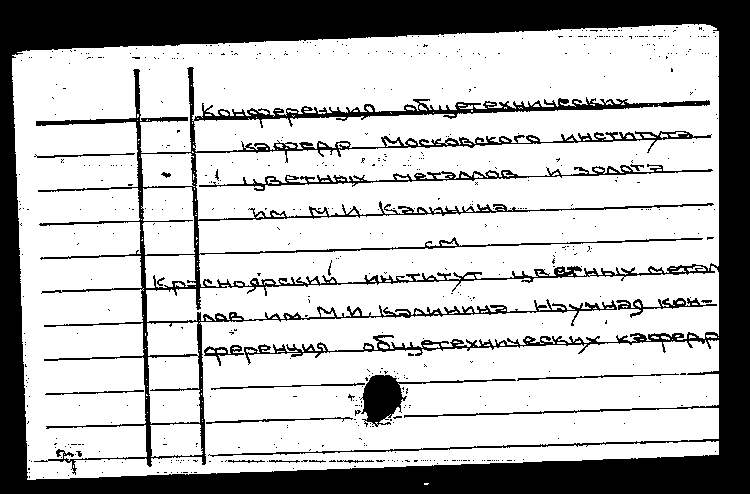 Конференция общетехнических
кафедр Московского института
цветных металлов и золота
им. М.И. Калинина.
см
Красноярский институт цветных метал
лов им. М.И. Калинина. Научная кон-
ференция общетехнических кафедр